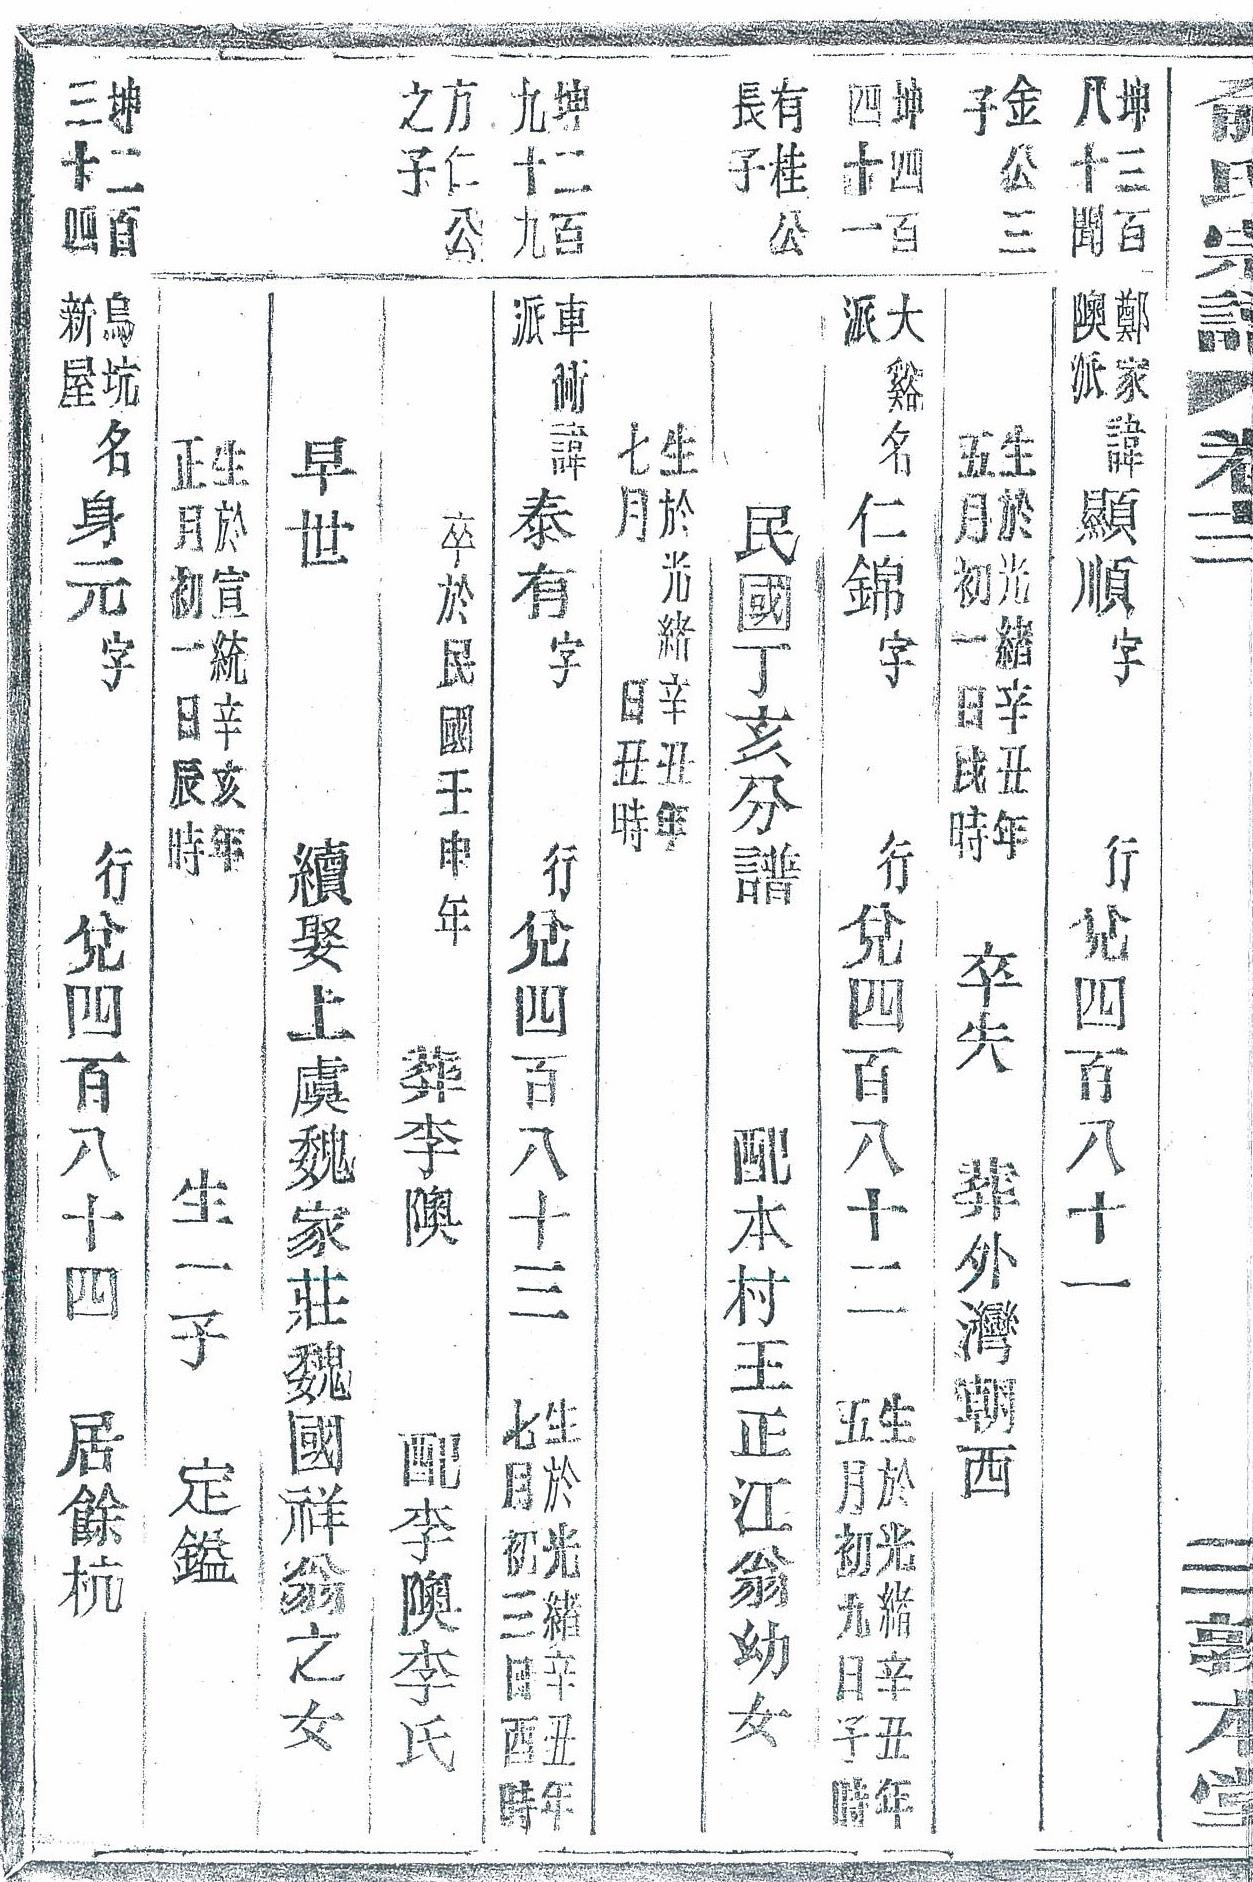 俞氏宗譜
卷三
三
敦本堂
坤三百
八十聞
金公三
子
鄭家
隩派
諱顯順
字
行兌四百八十一
生於光緒辛丑年
五月初一日戌時
卒失
葬外灣朝西
坤四百
四十一
有桂公
長子
大谿
派
名仁錦
字
行兌四百八十二
生於光緒辛丑年
五月初九日子時
民國丁亥分譜
配本村王正江翁幼女
生於光緒辛丑年
七月 日丑時
坤二百
九十九
方仁公
之子
車衕
派
諱泰有
字
行兌四百八十三
生於光緒辛丑年
七月初三日酉時
卒於民國壬申年
葬李隩
配李隩李氏
早世
續娶上虞魏家莊魏國祥翁之女
生於宣統辛亥年
正月初一日辰時
生一子
定鎰
坤二百
三十四
烏坑
新屋
名身元
字
行兌四百八十四
居餘杭